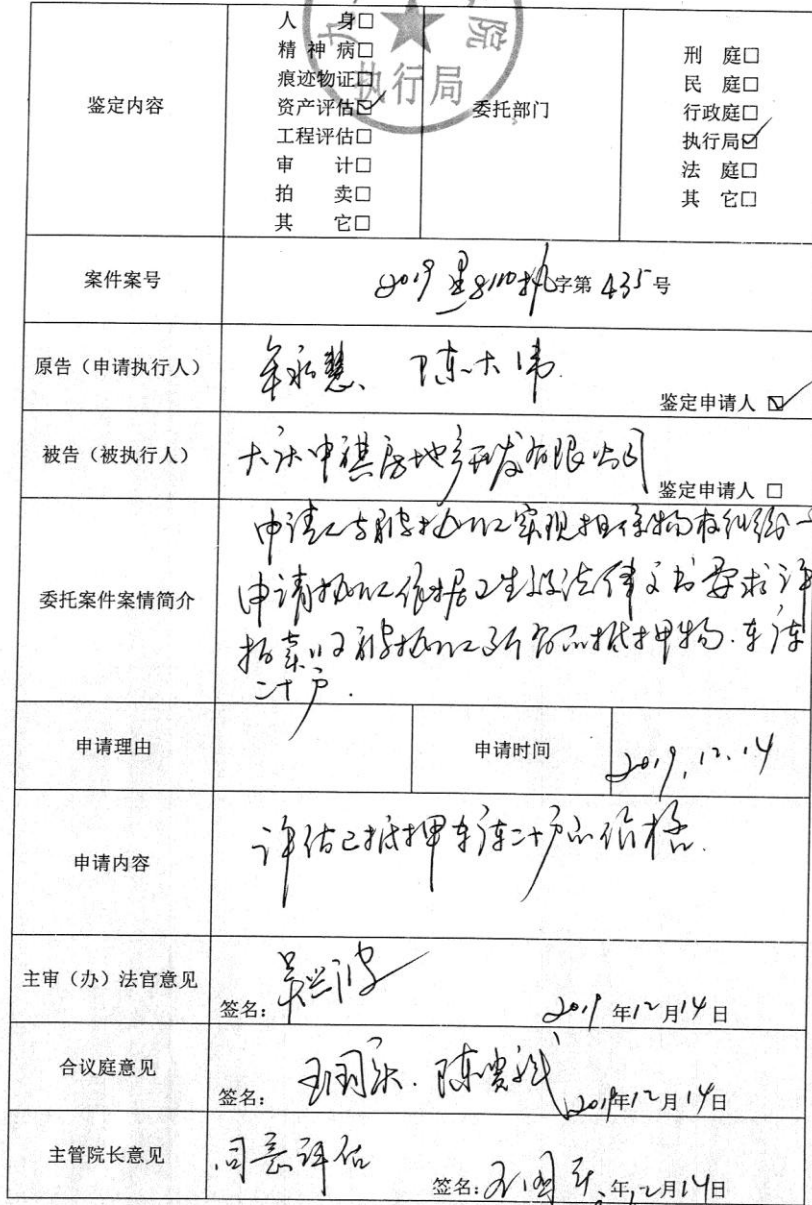 院
执行局
鉴定内容
人 身□
精 神 病□
痕迹物证□
资产评估☑
工程评估□
审 计□
拍 卖□
其 它□
委托部门
刑 庭□
民 庭□
行政庭□
执行局☑
法 庭□
其 它□
案件案号
2019 黑 执字第 435 号
原告（申请执行人）
牟永慧、 陈大伟.
鉴定申请人 ☑
被告（被执行人）
大庆中祺房地产开发有限公司
鉴定申请人 □
委托案件案情简介
申请人与被执行人实现担保物权纠纷一
申请执行人依据已生效法律文书要求评
拍卖 被执行人所有的抵押物.车库
二十户.
申请理由
申请时间
2019.12.14
申请内容
评估已抵押车库二十户的价格.
主审（办）法官意见
签名：
2019年12月14日
合议庭意见
签名：
2019年12月14日
主管院长意见
同意评估
签名：
年12月14日